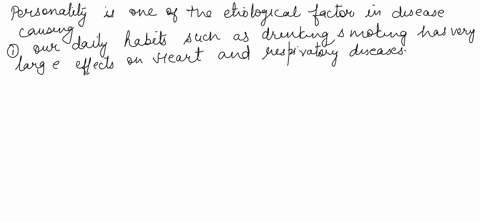 Personality is one of the etiological factor in disease
causing
① our daily habits such as drinking smoking has very
large effects on Heart and respiratory diseases.